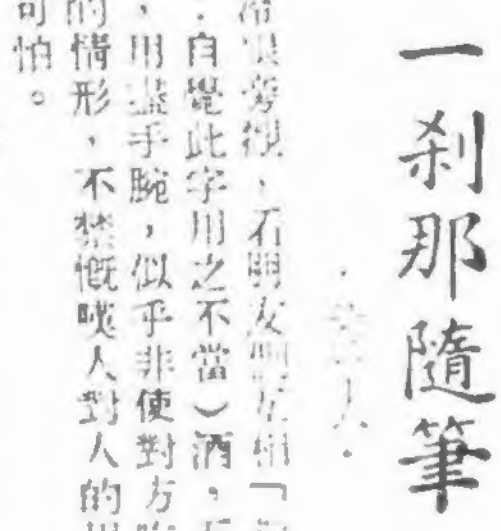 一刹那隨筆
人
冷眼旁觀,看朋友們互相「
自覺此字用之不當)酒,
,用盡手腕,似乎非使對方
的情形,不禁慨嘆人對人的
可怕。